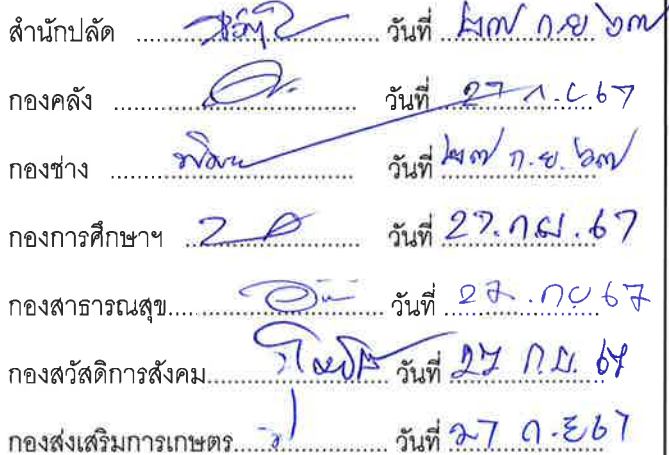 สำนักปลัด .................... วันที่ ๒๗ ก.ย ๖๗
กองคลัง .................... วันที่ 27 ก.ย 67
กองช่าง .................... วันที่ ๒๗ ก.ย. ๖๗
กองการศึกษาฯ .................... วันที่ 27.ก.ย.67
กองสาธารณสุข.................... วันที่ 27.กย 67
กองสวัสดิการสังคม.................... วันที่ 27 ก.ย. 67
กองส่งเสริมการเกษตร.................... วันที่ 27 ก.ย 67